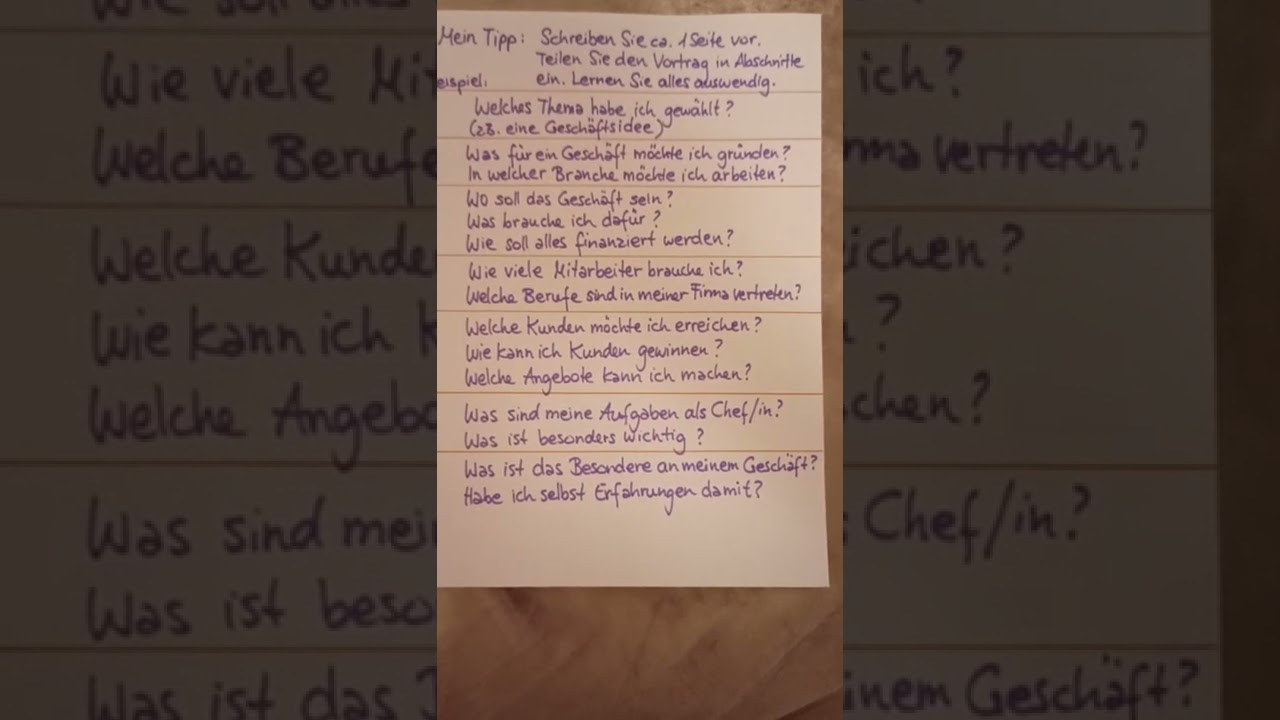 Mein Tipp: Schreiben Sie ca. 1 Seite vor.
Teilen Sie den Vortrag in Abschnitte
eispiel: ein. Lernen Sie alles auswendig.
Welches Thema habe ich gewählt?
(z.B. eine Geschäftsidee)
Was für ein Geschäft möchte ich gründen?
In welcher Branche möchte ich arbeiten?
Wo soll das Geschäft sein?
Was brauche ich dafür?
Wie soll alles finanziert werden?
Wie viele Mitarbeiter brauche ich?
Welche Berufe sind in meiner Firma vertreten?
Welche Kunden möchte ich erreichen?
Wie kann ich Kunden gewinnen?
Welche Angebote kann ich machen?
Was sind meine Aufgaben als Chef/in?
Was ist besonders wichtig?
Was ist das Besondere an meinem Geschäft?
Habe ich selbst Erfahrungen damit?